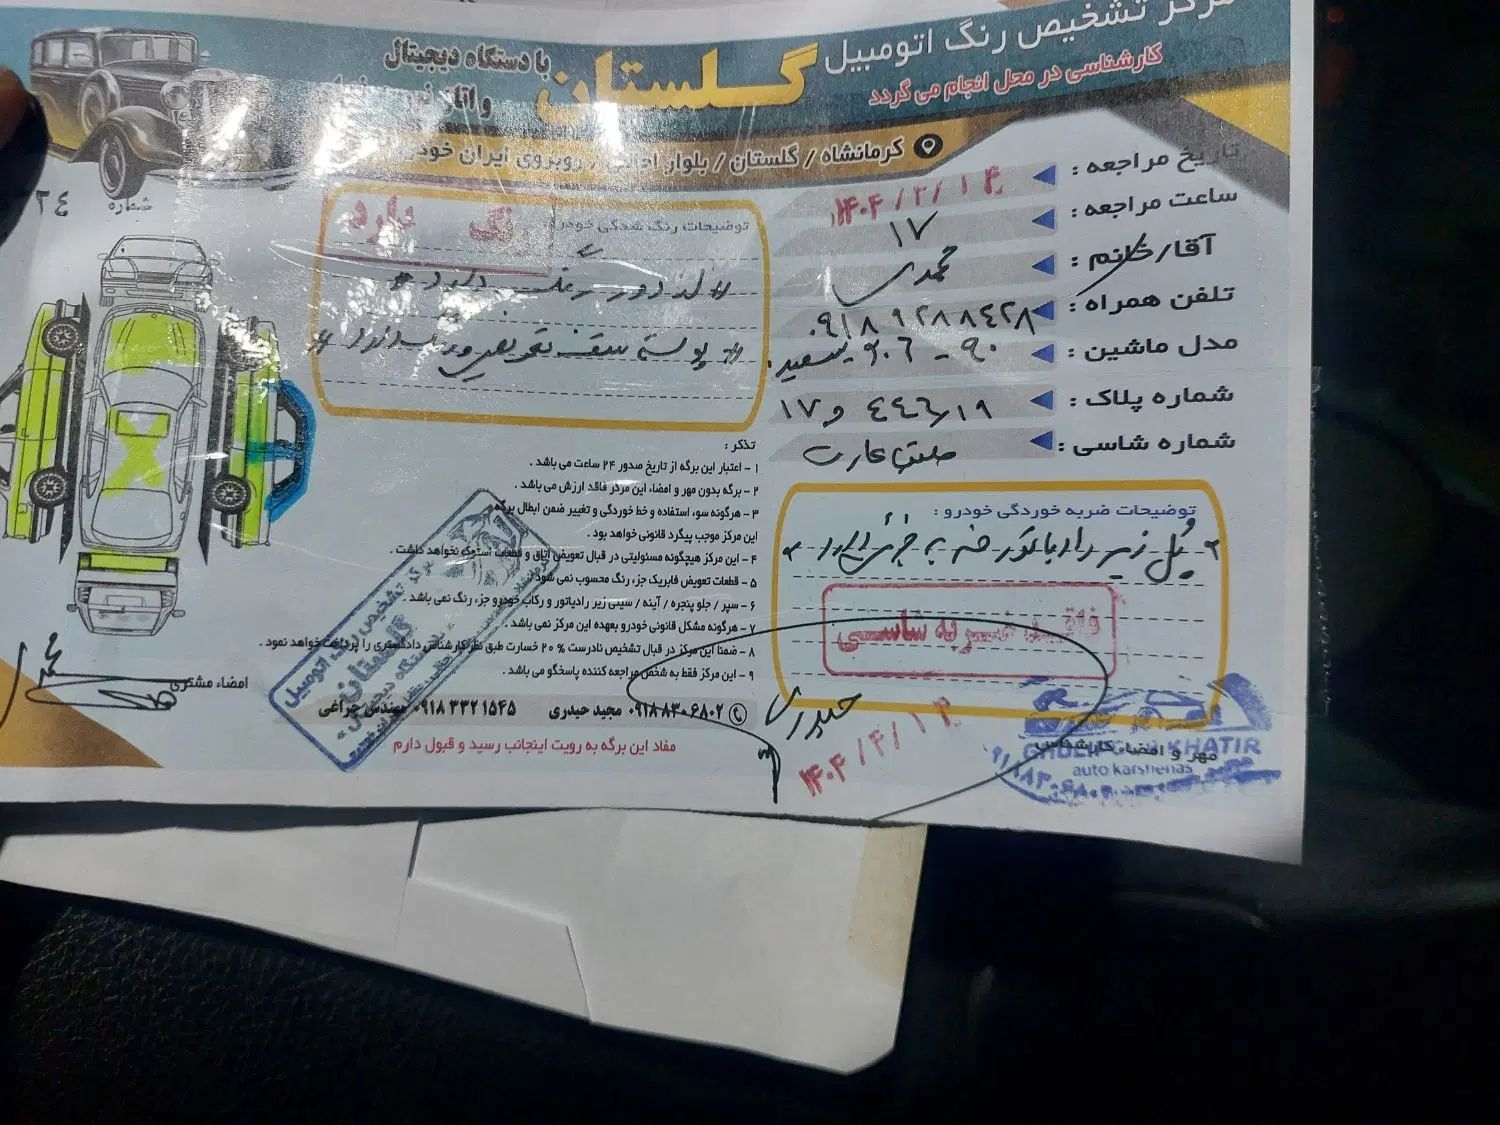 مرکز تشخیص رنگ اتومبیل
گلستان
با دستگاه دیجیتال
کارشناسی در محل انجام می گردد
کرمانشاه / گلستان / بلوار / روبروی ایران خودرو
شماره
۲٤
تاریخ مراجعه :
۱۴۰۴/۲/۱۴
ساعت مراجعه :
۱۷
آقا/خانم :
محمدی
تلفن همراه :
۰۹۱۸۹۲۸۸٤۲۸
مدل ماشین :
۲۰٦ - ۹۰ سفید
شماره پلاک :
شماره شاسی :
توضیحات رنگ شدگی خودرو
رنگ دارد
دور رنگ دارد
پوسته سقف تعویض
توضیحات ضربه خوردگی خودرو :
پل زیر رادیاتور ضربه جزئی دارد
فاقد ضربه شاسی
تذکر :
۱ - اعتبار این برگه از تاریخ صدور ۲۴ ساعت می باشد .
۲ - برگه بدون مهر و امضاء این مرکز فاقد ارزش می باشد .
۳ - هرگونه سوء استفاده و خط خوردگی و تغییر ضمن ابطال برگه
این مرکز موجب پیگرد قانونی خواهد بود .
۴ - این مرکز هیچگونه مسئولیتی در قبال تعویض اتاق و قطعات استوک نخواهد داشت .
۵ - قطعات تعویض فابریک جزء رنگ محسوب نمی شود .
۶ - سپر / جلو پنجره / آینه / سینی زیر رادیاتور و رکاب خودرو جزء رنگ نمی باشد .
۷ - هرگونه مشکل قانونی خودرو بعهده این مرکز نمی باشد .
۸ - ضمنا این مرکز در قبال تشخیص نادرست ۲۰ % خسارت طبق نظر کارشناس دادگستری را پرداخت خواهد نمود .
۹ - این مرکز فقط به شخص مراجعه کننده پاسخگو می باشد .
۰۹۱۸۸۳۰۶۸۰۲ مجید حیدری ۰۹۱۸۳۳۲۱۵۴۵ مهندس چراغی
مفاد این برگه به رویت اینجانب رسید و قبول دارم
امضاء مشتری
حیدری
مهر و امضاء کارشناس
KHATIR
auto karshenas
مرکز تشخیص رنگ اتومبیل